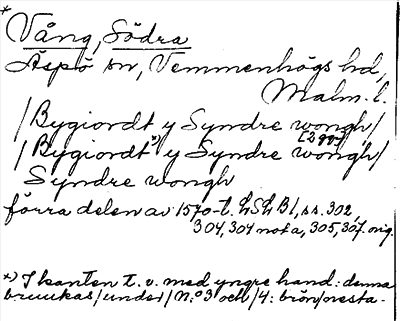 *
Vång, Södra
Äspö sn, Vemmenhögs hd,
Malm. l.
/Bygiordt y Syndre wongh/
[2 ggr]
/Bygiordt *) y Syndre wongh/
Syndre wongh
förra delen av 1570-t. LSLB1, ss. 302,
304, 304 nota, 305, 307. orig.
*) I kanten t. v. med yngre hand: denna
bruukas/under/N:o 3 och/4: brön/nesta.